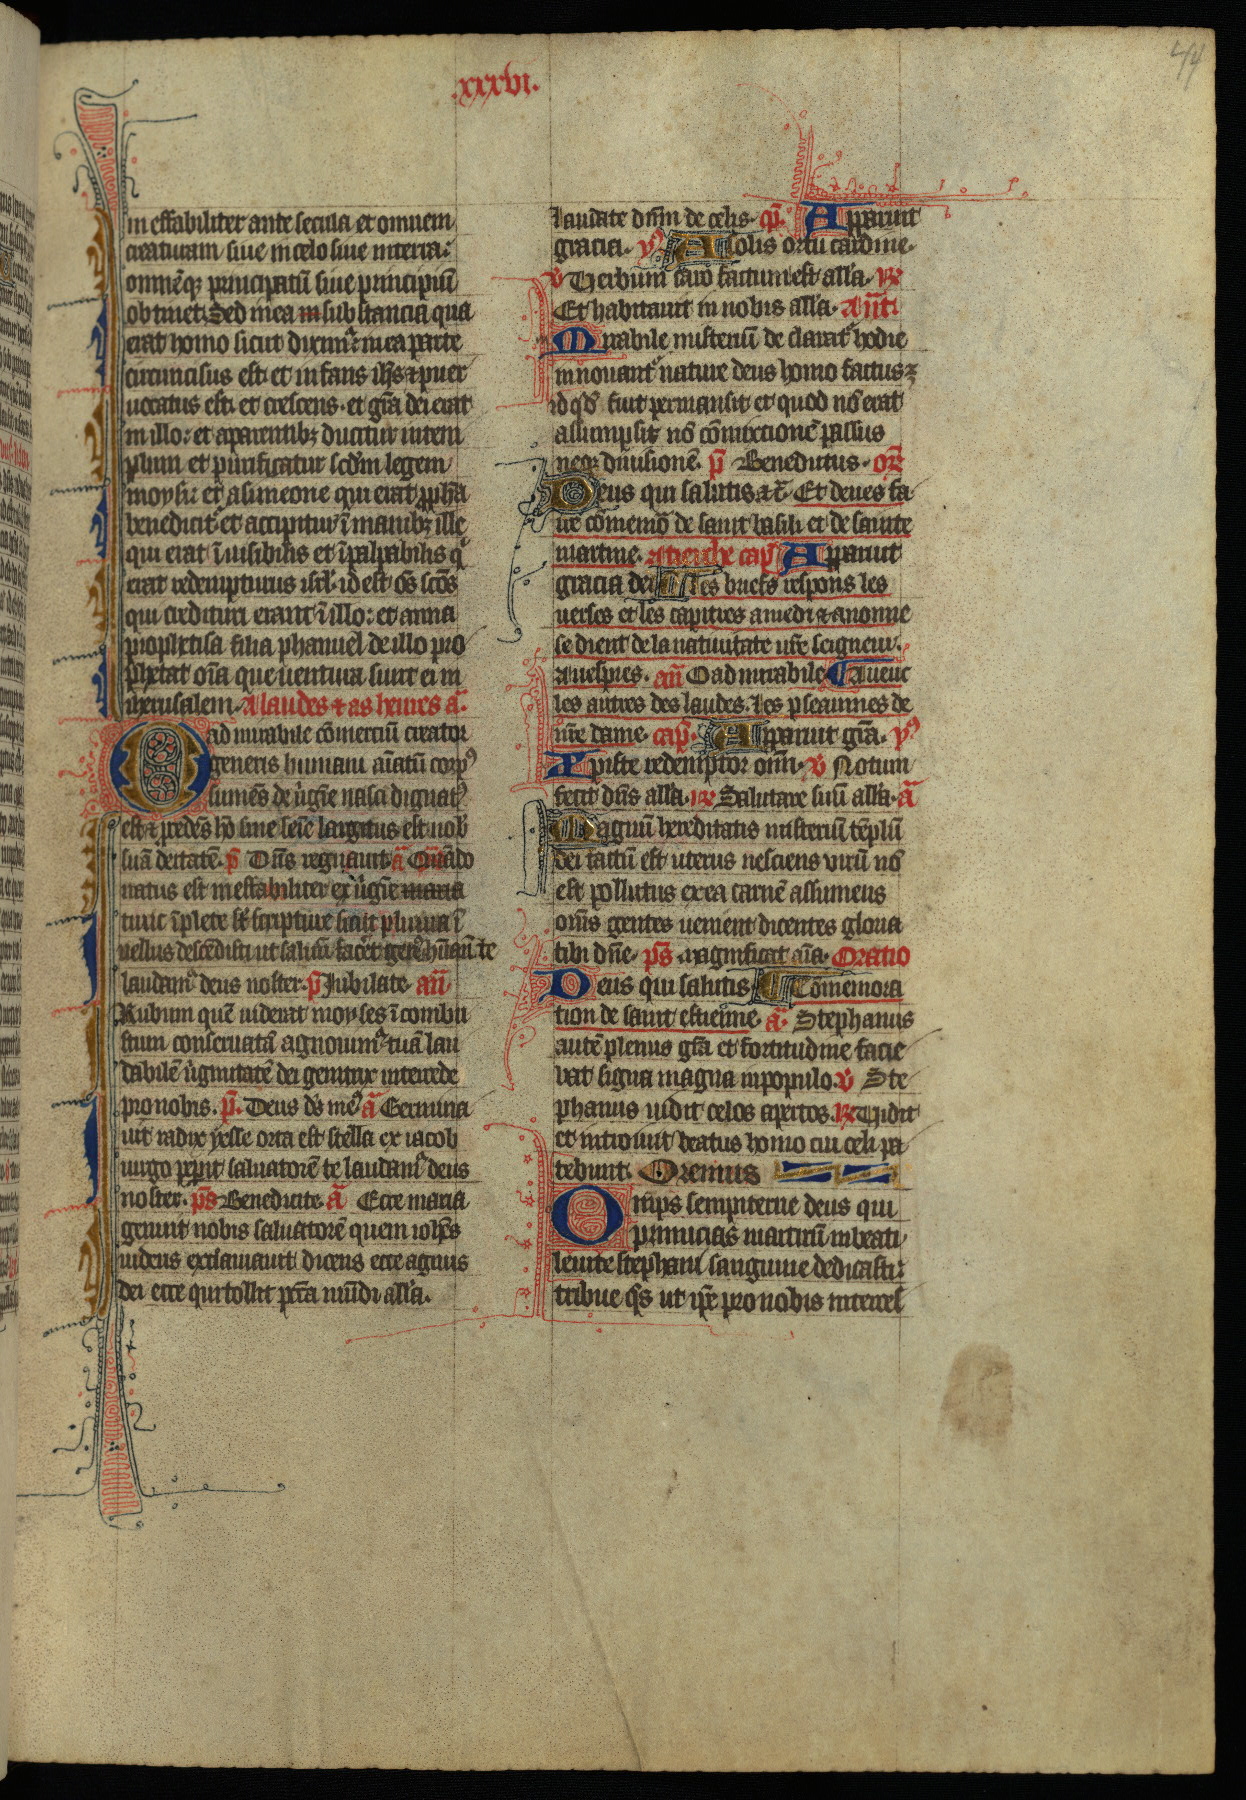 .xxxvi.
44
in effabiliter ante secula et omnem
creaturam siue in celo siue in terra:
omnēqꝫ principatū siue principiū
obtinet. Sed in ea in substancia qua
erat homo sicut dicim᷑ in ea parte
circuncisus est. et infans ih̄s ⁊ puer
uocatus est. et crescens. et gr̄a dei erat
in illo: et aparentibꝫ ducitur in tem
plum et purificatur scd̄m legem
moysi: et a simeone qui erat ꝓph̄a
benedicit᷑ et accipitur ī manibꝫ ille
qui erat ī uisibilis et īpalpabilis q̄
erat redempturus isrl̄. id est om̄s sc̄os
qui credituri erant ī illo: et anna
prophetisa filia phanuel de illo pro
phetat om̄a que uentura sunt ei in
iherusalem. A laudes ⁊ as heures a᷑.
O ad mirabile cōmerciū creator
generis humani aīatū corpꝰ
sumēs de uirgīe nasci dignatꝰ
est ⁊ p̄cedēs hō sine seīe largitus est nob̄
suā deitatē. p̄ Dn̄s regnauit. a᷑ Quādo
natus est ineffabiliter ex uirgīe maria
tunc īplete st̄ scripture sicut pluuia ī
uellus descēdisti ut saluū facēs gen᷑ hūanū te
laudam᷑ deus noster. p̄ Jubilate. an̄.
Rubum quē uiderat moyses ī combu
stum conseruatā agnouim᷑ tuā lau
dabilē uirginitatē dei genitrix intercede
pro nobis. p̄. Deus ds̄ meꝰ a᷑ Germina
uit radix yesse orta est stella ex iacob
uirgo peperit saluatorē te laudam᷑ deus
noster. ps̄ Benedicite. a᷑ Ecce maria
genuit nobis saluatorē quem ioh̄es
uidens exclamauit dicens ecce agnus
dei ecce qui tollit pcc̄a mūdi all̄a.
laudate dn̄m de celis. cap̄. Apparuit
gracia. yꝰ A solis ortu cardine.
v Verbum caro factum est all̄a. ꝶ
Et habitauit in nobis all̄a. Anti
Mirabile misteriū de clarat᷑ hodie
innouant᷑ nature deus homo factus ē
id qd̄ fuit permansit et quod nō erat
assumpsit nō cōmixtionē passus
neqꝫ diuisionē. p̄ Benedictus. or̄
Deus qui salutis. ⁊c̄. Et deues fa
ire cōmemō de saint basili et de sainte
martine. A tierche cap̄ Apparuit
gracia dei Les briefs respons les
verses et les capitres a miedi ⁊ a nonne
se dient de la natiuitate nr̄e seigneur.
A uespres. an̄ O ad mirabile. Auenc
les autres des laudes. Les pseaumes de
nr̄e dame. cap̄. Apparuit gr̄a. yꝰ
Xpiste redemptor om̄. v Notum
fecit dn̄s all̄a. ꝶ Salutare suū all̄a. a᷑
Magnū hereditatis misteriū tēplū
dei factū est uterus nesciens virū nō
est pollutus ex ea carnē assumens
om̄s gentes uenient dicentes gloria
tibi dn̄e. ps̄ magnificat aīa. Oratio
Deus qui salutis. Cōmemora
tion de saint estienne. a᷑ Stephanus
autē plenus gr̄a et fortitudine facie
bat signa magna in populo. v Ste
phanus uidit celos apertos. ꝶ Vidit
et introiuit beatus homo cui celi pa
tebunt. Oremus
Omps sempiterne deus qui
primicias martirū in beati
leuite stephani sanguine dedicasti:
tribue qs̄ ut ip̄e pro nobis interces